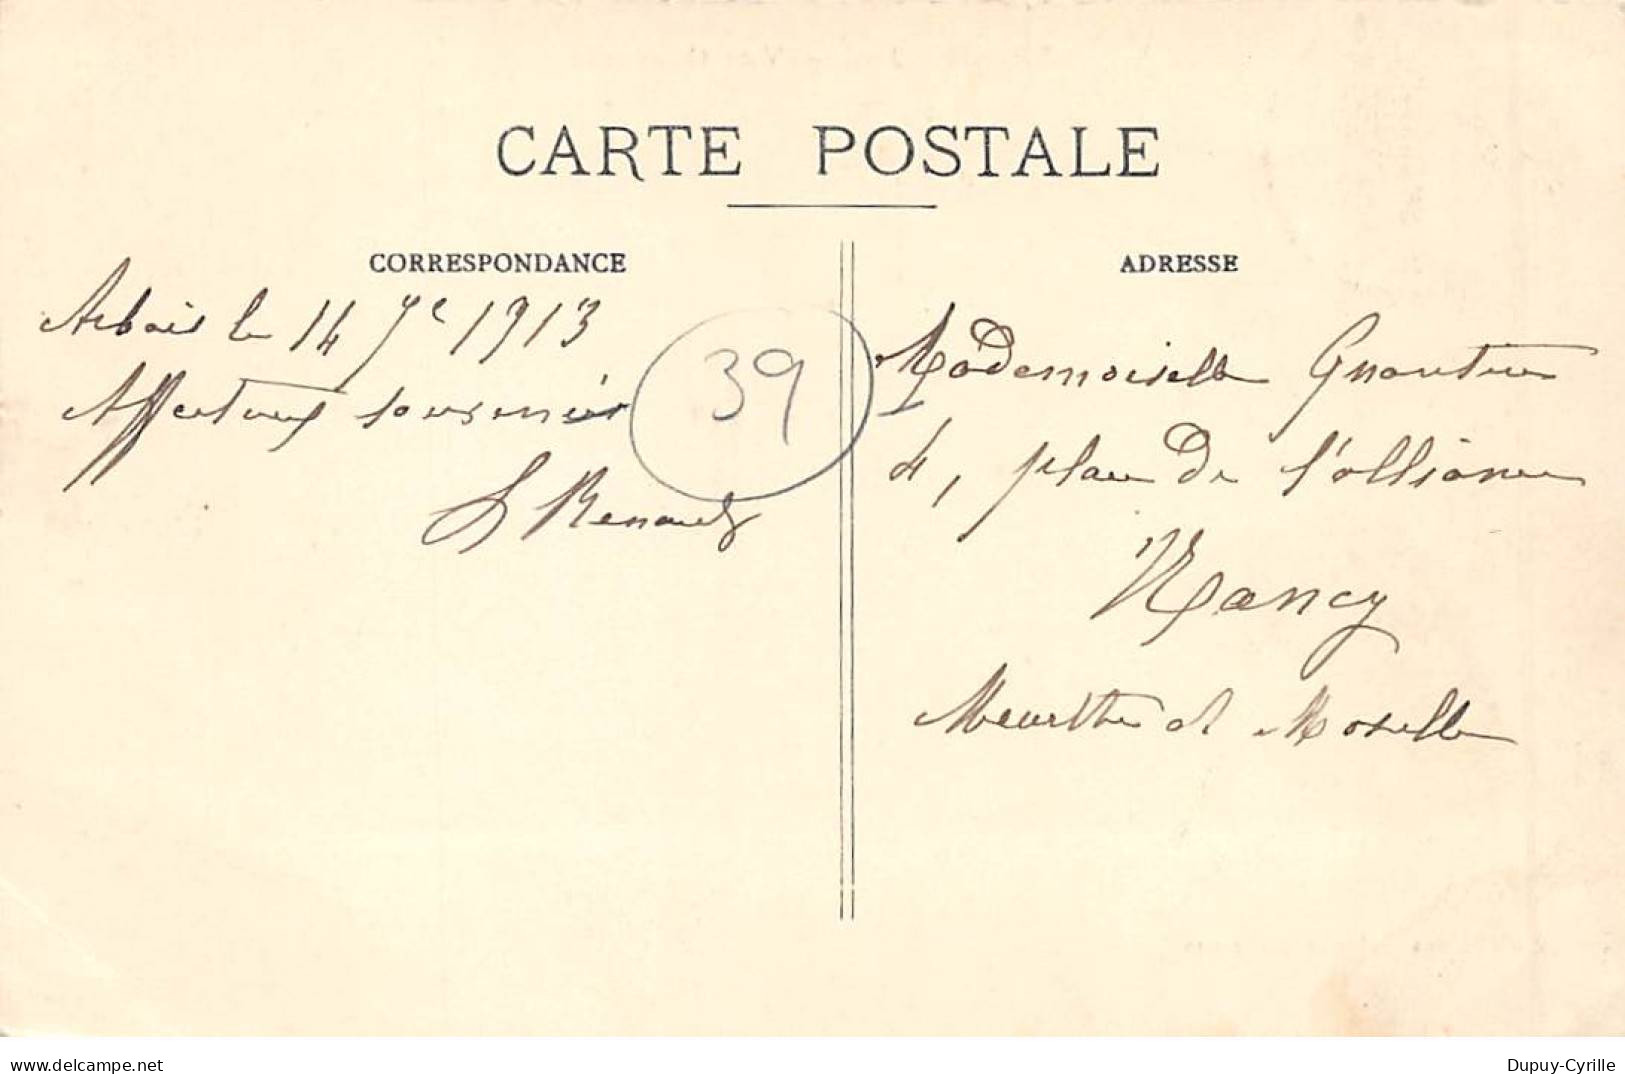 CARTE POSTALE
CORRESPONDANCE
Arbois le 14 7e 1913
Affectueux souvenirs
Renault
39
ADRESSE
Mademoiselle
4, place de l'alliance
Nancy
Meurthe et Moselle
www.delcampe.net
Dupuy-Cyrille